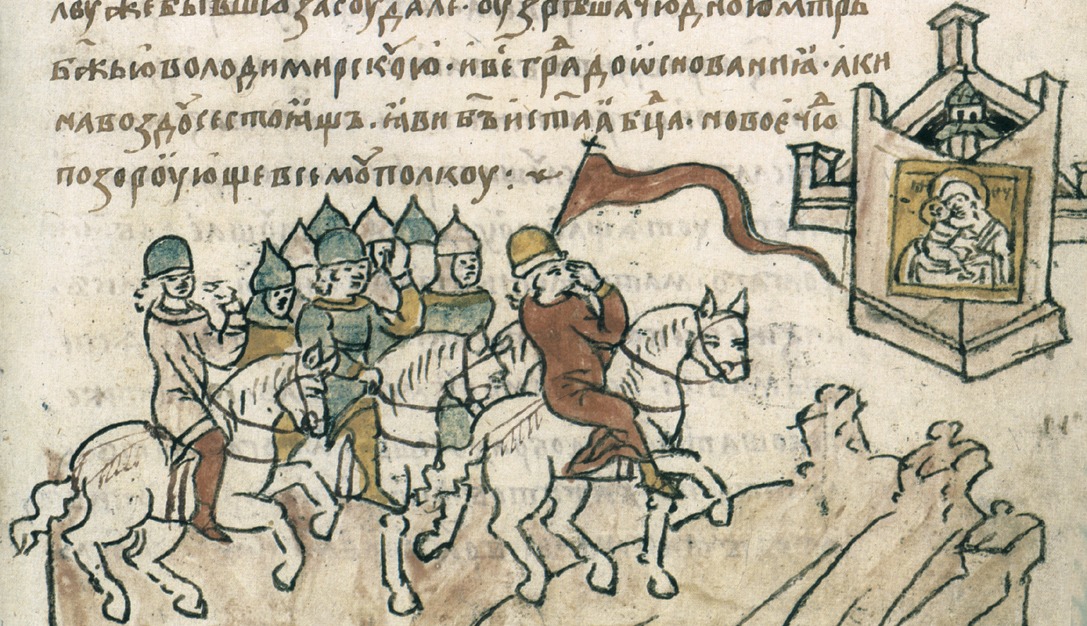 лвоу же бывшю за соудале · оузрѣша чюдною мт҃рь
бж҃ью володимирскⷪ҇ю · и ве градⷣ до ѡснованиꙗ · аки
на воздоⷯсе стоꙗщь . ꙗви бъ҃ и ст҃аꙗ бц҃а · новое чюⷣ
позороующе всемоⷹ полкоу :